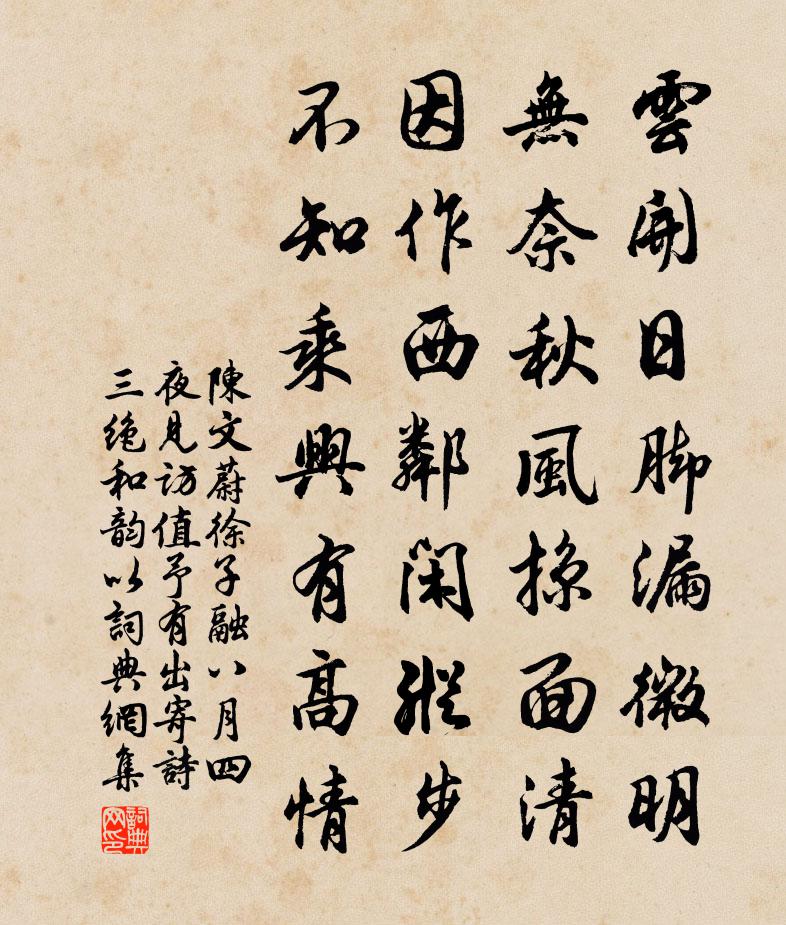 雲開日脚漏微明
無奈秋風掠面清
因作西鄰閑縱步
不知乘興有高情
陳文蔚徐子融八月四
夜見访值予有出寄詩
三绝和韵以詞典網集
詞典网印